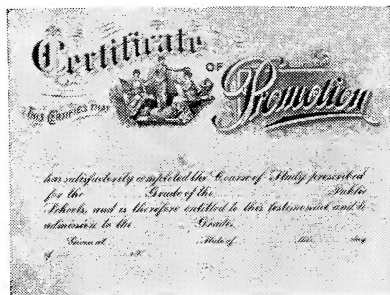 Certificate
OF
Promotion
THIS CERTIFIES THAT
has satisfactorily completed the Course of Study prescribed
for the Grade of the Public
Schools, and is therefore entitled to this testimonial and to
admission to the Grade.
Given at State of this day
of A.D.